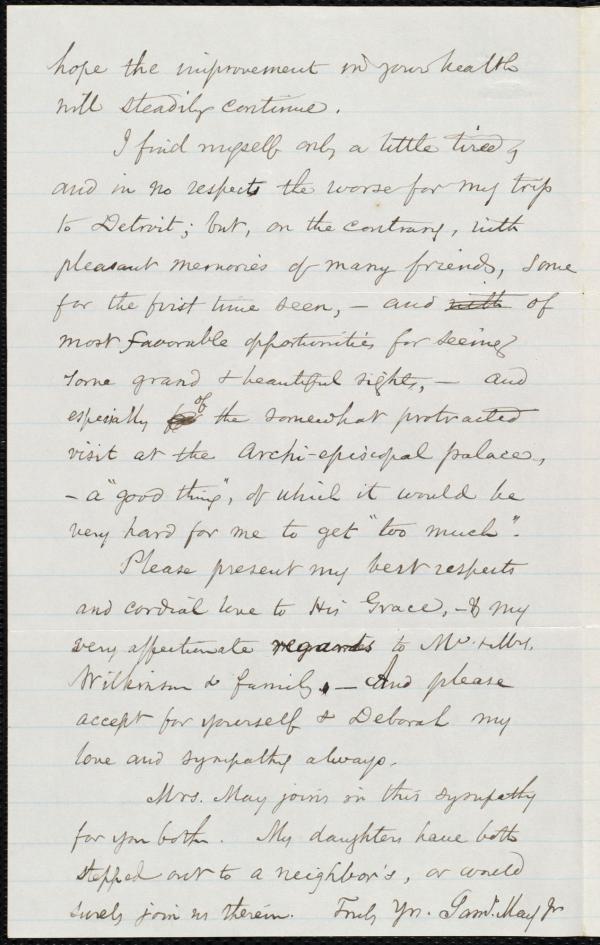 hope the improvement in your health
will steadily continue.
I find myself only a little tired,
and in no respects the worse for my trip
to Detroit; but, on the contrary, with
pleasant memories of many friends, some
for the first time seen, — and with of
most favorable opportunities for seeing
some grand & beautiful sights, — and
especially of the somewhat protracted
visit at the Archi-episcopal palace,
— a "good thing", of which it would be
very hard for me to get "too much".
Please present my best respects
and cordial love to His Grace, — & my
very affectionate regards to Mr. & Mrs.
Wilkinson & family, — And please
accept for yourself & Deborah my
love and sympathy always.
Mrs. May joins in this sympathy
for you both. My daughters have both
stepped out to a neighbor's, or would
surely join us therein. Truly Yrs. Saml. May Jr